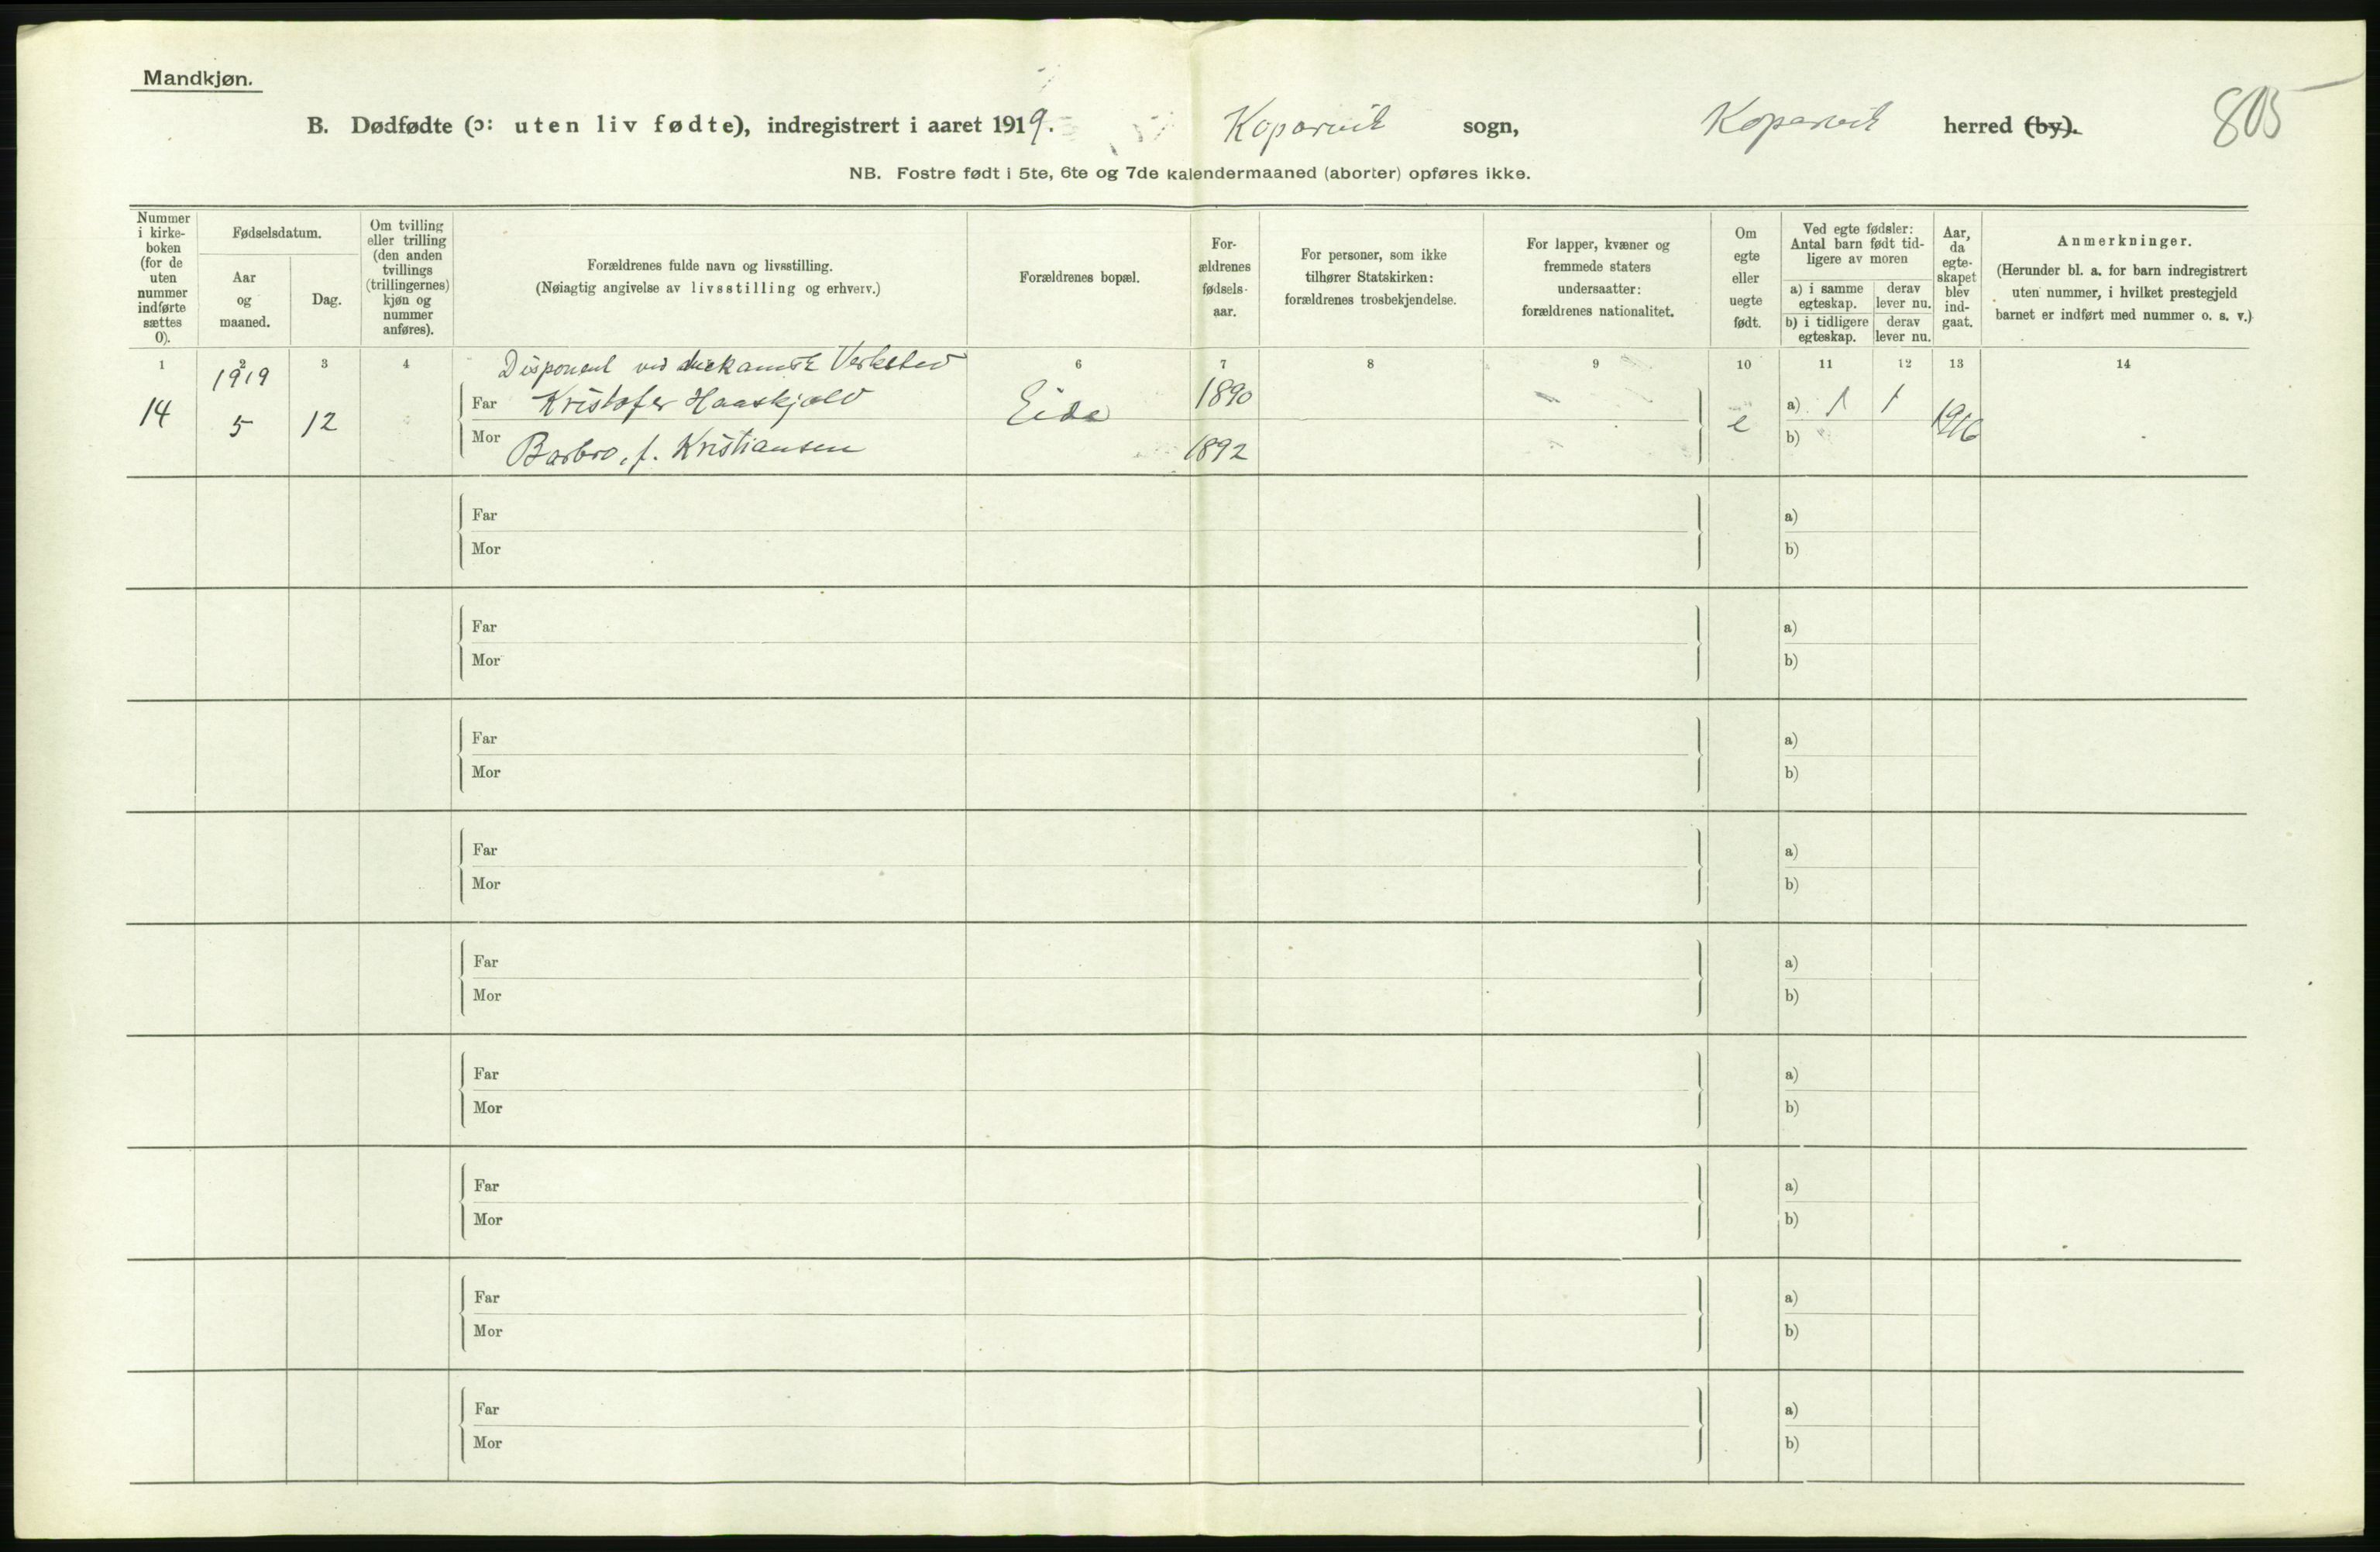 Mandkjøn.
B. Dødfødte (ɔ: uten liv fødte), indregistrert i aaret 1919. Kopervik sogn, Kopervik herred (by). 805
NB. Fostre født i 5te, 6te og 7de kalendermaaned (aborter) opføres ikke.
Nummer i kirke- boken (for de uten nummer indførte sættes 0).
Fødselsdatum.
Aar og maaned.
Dag.
Om tvilling eller trilling (den anden tvillings (trillingernes) kjøn og nummer anføres).
Forældrenes fulde navn og livsstilling.
(Nøiagtig angivelse av livsstilling og erhverv.)
Forældrenes bopæl.
For- ældrenes fødsels- aar.
For personer, som ikke tilhører Statskirken: forældrenes trosbekjendelse.
For lapper, kvæner og fremmede staters undersaatter: forældrenes nationalitet.
Om egte eller uegte født.
Ved egte fødsler: Antal barn født tid- ligere av moren
a) i samme egteskap.
derav lever nu.
b) i tidligere egteskap.
derav lever nu.
Aar, da egte- skapet blev ind- gaat.
Anmerkninger.
(Herunder bl. a. for barn indregistrert uten nummer, i hvilket prestegjeld barnet er indført med nummer o. s. v.)
1 2 3 4 6 7 8 9 10 11 12 13 14
1919 Disponent ved mekanisk Verksted
14 5 12 Far Kristofer Haaskjold Eide 1890 e a) 1 1 1916
Mor Barbro, f. Kristiansen 1892 b)
Far a)
Mor b)
Far a)
Mor b)
Far a)
Mor b)
Far a)
Mor b)
Far a)
Mor b)
Far a)
Mor b)
Far a)
Mor b)
Far a)
Mor b)
Far a)
Mor b)